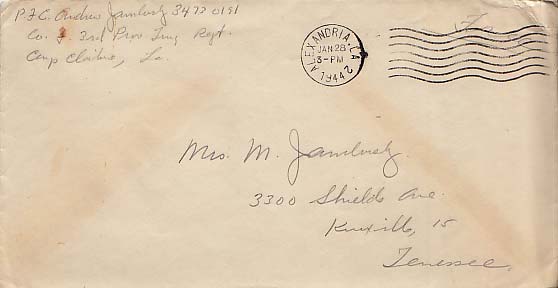 P.F.C. Andrew Jamborsky 3473 0191
Co. I. 3rd Prov Trng Regt.
Camp Claiborne, La.
ALEXANDRIA, LA.
JAN 28
3-PM
1944
2
Free
Mrs. M. Jamborsky
3300 Shields Ave.
Knoxville, 15
Tennessee.